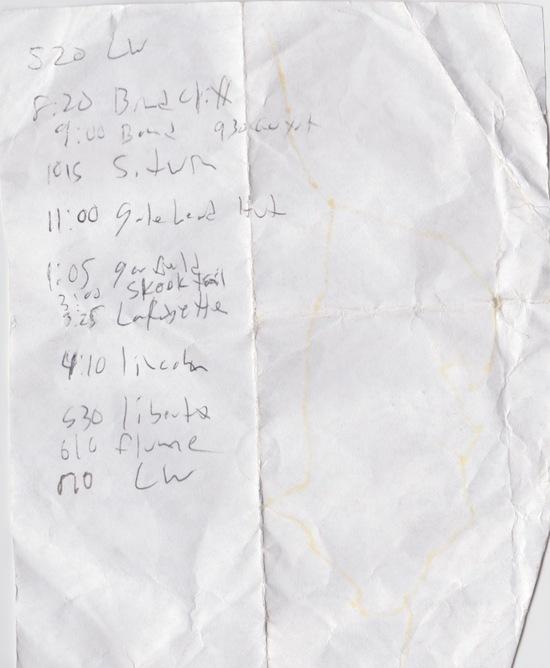 520 LW
8:20 Bondcliff
9:00 Bond 930 Guyot
1015 S. twin
11:00 galehead Hut
1:05 garfield
3:00 Skook trail
3:25 Lafayette
4:10 lincoln
530 liberty
610 flume
LW